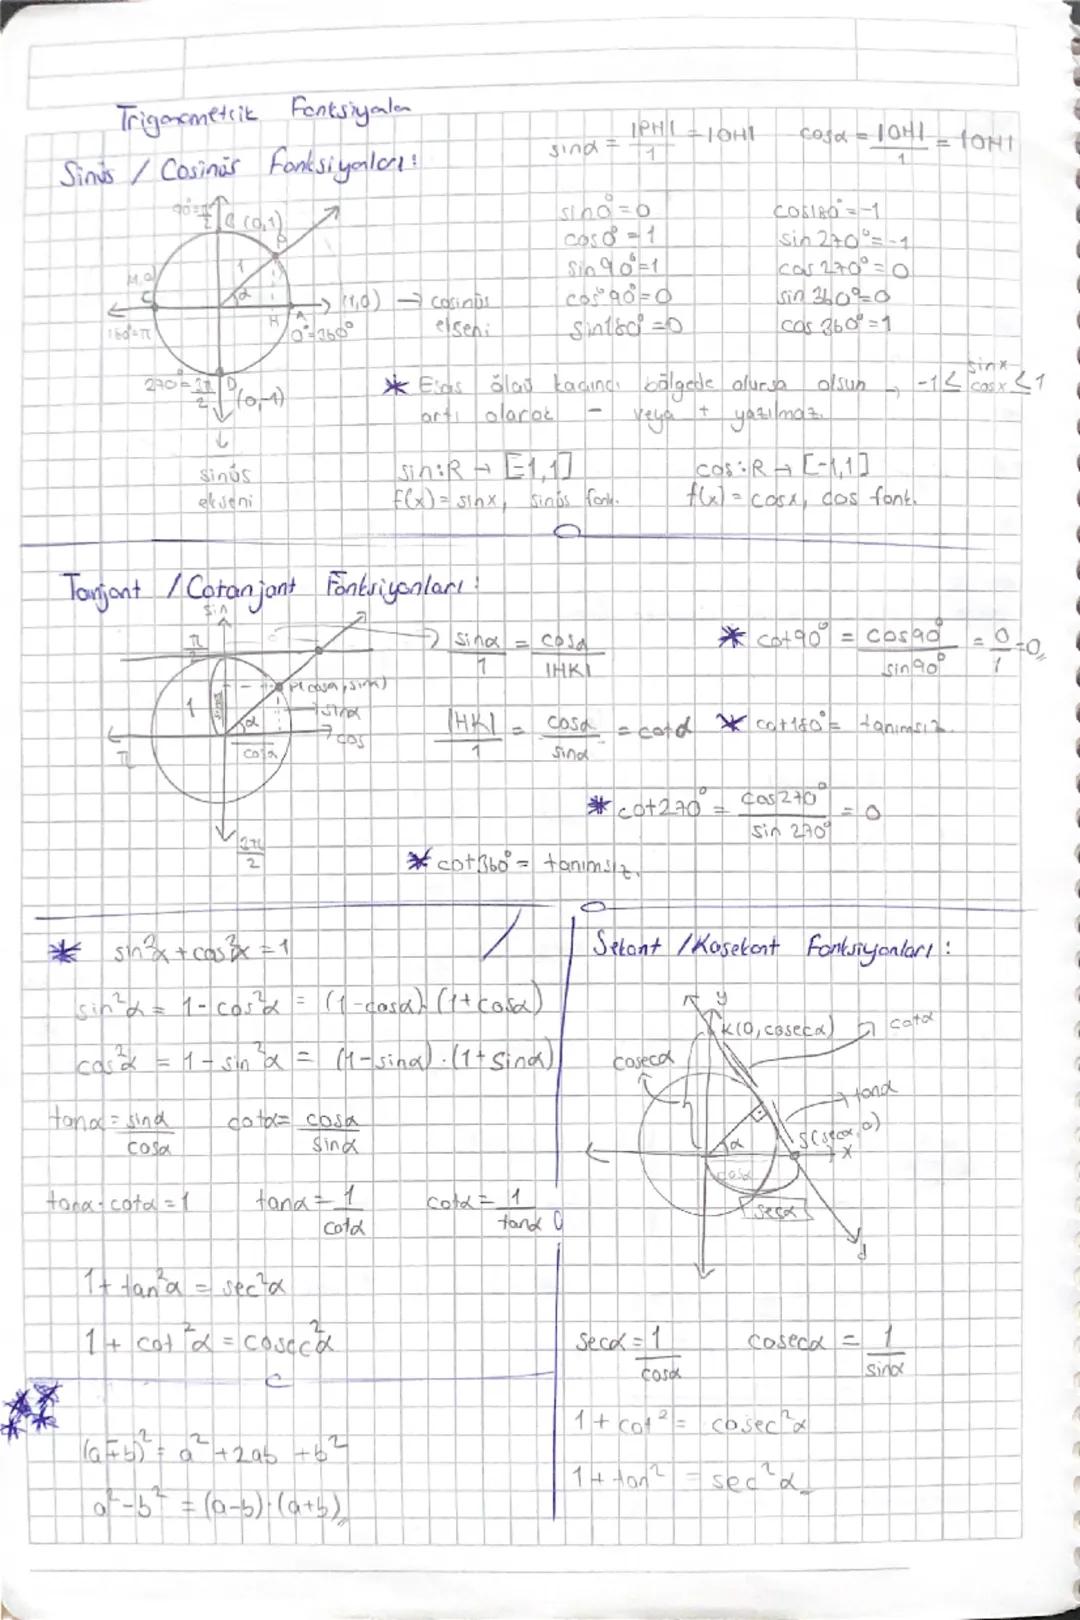 Trigonometrik Fonksiyonlar
Sinüs / Cosinüs Fonksiyonları:
sinα = |PH|/1 = |OH|
cosα = |OH|/1 = |OH|
90°=π/2
(0,1)
P
1
α
C
H
A
(1,0) → cosinüs ekseni
180°=π
0°=360°
270°=3π/2
D
(0,-1)
sinüs
ekseni
sin0°=0
cos0°=1
sin90°=1
cos90°=0
sin180°=0
cos180°=-1
sin270°=-1
cos270°=0
sin360°=0
cos360°=1
* Esas ölçü kaçıncı bölgede olursa olsun, -1≤ sinx cosx ≤1
artı olarak - veya + yazılmaz.
sin:R → [-1,1]
f(x)=sinx, sinüs fonk.
cos:R → [-1,1]
f(x)=cosx, cos fonk.
Tanjant / Cotanjant Fonksiyonları:
sin
π/2
P(cosα, sinα)
1
α
sinα
cos
cosα
π
3π/2
→ sinα/1 = cosα/|HK|
|HK|/1 = cosα/sinα = cotα
* cot90° = cos90°/sin90° = 0/1 =0
* cot180°= tanımsız.
* cot270° = cos270°/sin270° = 0
* cot360°= tanımsız.
* sin²x + cos²x = 1
sin²α = 1-cos²α = (1-cosα).(1+cosα)
cos²α = 1-sin²α = (1-sinα).(1+sinα)
tanα = sinα/cosα
cotα= cosα/sinα
tanα.cotα=1
tanα = 1/cotα
cotα = 1/tanα
1+ tan²α = sec²α
1+ cot²α = cosec²α
(a∓b)² = a²+2ab+b²
a²-b² = (a-b).(a+b)
Sekant / Kosekant Fonksiyonları:
y
K(0,cosecα)
cotα
cosecα
tanα
S(secα,0)
x
α
cosα
secα
d
secα = 1/cosα
cosecα = 1/sinα
1+cot² = cosec²α
1+tan² = sec²α